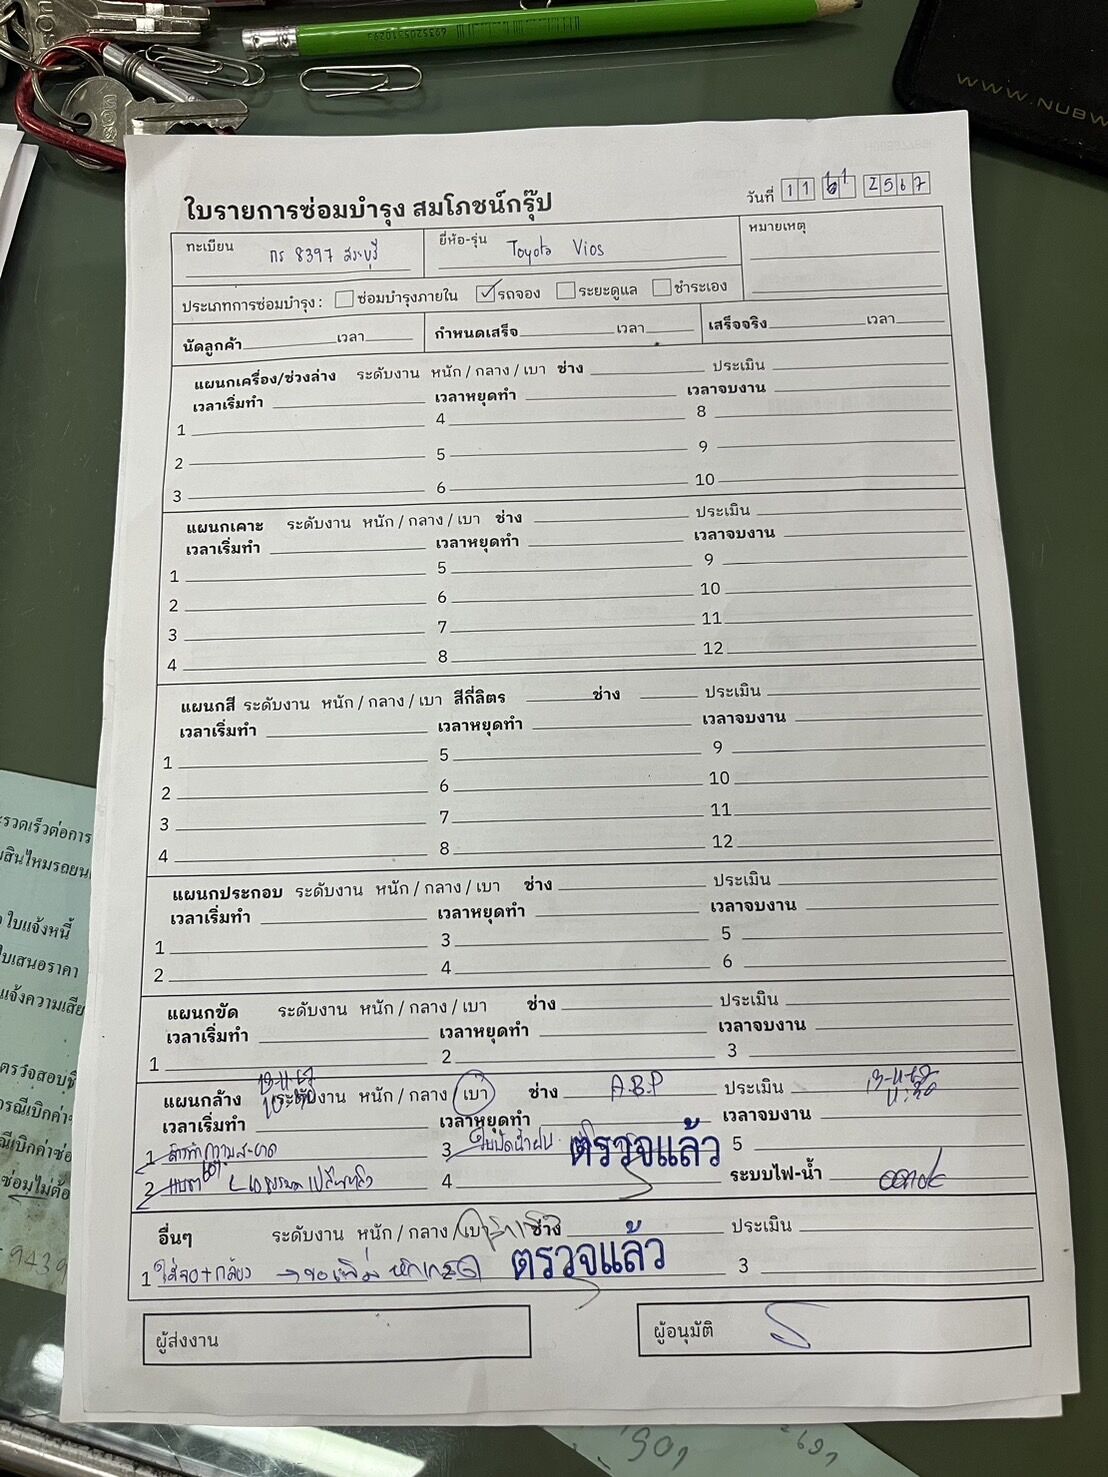 WWW.NUBW
ใบรายการซ่อมบำรุง สมโภชน์กรุ๊ป
วันที่ 11 11 2567
ทะเบียน กร 8397 สระบุรี ยี่ห้อ-รุ่น Toyota Vios หมายเหตุ
ประเภทการซ่อมบำรุง : ซ่อมบำรุงภายใน ✓ รถจอง ระยะดูแล ชำระเอง
นัดลูกค้า เวลา กำหนดเสร็จ เวลา เสร็จจริง เวลา
แผนกเครื่อง/ช่วงล่าง ระดับงาน หนัก / กลาง / เบา ช่าง ประเมิน
เวลาเริ่มทำ เวลาหยุดทำ เวลาจบงาน
1 4 8
2 5 9
3 6 10
แผนกเคาะ ระดับงาน หนัก / กลาง / เบา ช่าง ประเมิน
เวลาเริ่มทำ เวลาหยุดทำ เวลาจบงาน
1 5 9
2 6 10
3 7 11
4 8 12
แผนกสี ระดับงาน หนัก / กลาง / เบา สีกี่ลิตร ช่าง ประเมิน
เวลาเริ่มทำ เวลาหยุดทำ เวลาจบงาน
1 5 9
2 6 10
3 7 11
4 8 12
แผนกประกอบ ระดับงาน หนัก / กลาง / เบา ช่าง ประเมิน
เวลาเริ่มทำ เวลาหยุดทำ เวลาจบงาน
1 3 5
2 4 6
แผนกขัด ระดับงาน หนัก / กลาง / เบา ช่าง ประเมิน
เวลาเริ่มทำ เวลาหยุดทำ เวลาจบงาน
1 2 3
แผนกล้าง 13-11-67 ระดับงาน หนัก / กลาง / เบา ช่าง A.B.P ประเมิน 13-11-67
เวลาเริ่มทำ เวลาหยุดทำ เวลาจบงาน
1 ล้างทำความสะอาด 3 ใบปัดน้ำฝน ตรวจแล้ว 5
2 4 ระบบไฟ-น้ำ
อื่นๆ ระดับงาน หนัก / กลาง / เบา ช่าง ประเมิน
1 ใส่จอ + กล้อง ตรวจแล้ว 3
ผู้ส่งงาน ผู้อนุมัติ
ะรวดเร็วต่อการ
ใบแจ้งหนี้
ใบเสนอราคา
แจ้งความเสีย
ตรวจสอบ
กรณีเบิกค่า
ซ่อมไม่ต้อ